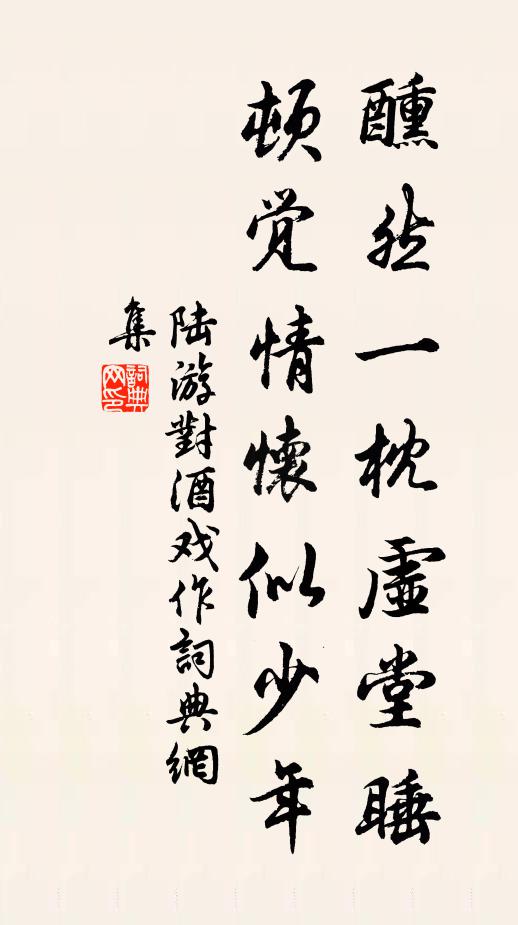 醺然一枕虛堂睡
頓覺情懷似少年
陆游對酒戏作詞典網
集
詞典
网印